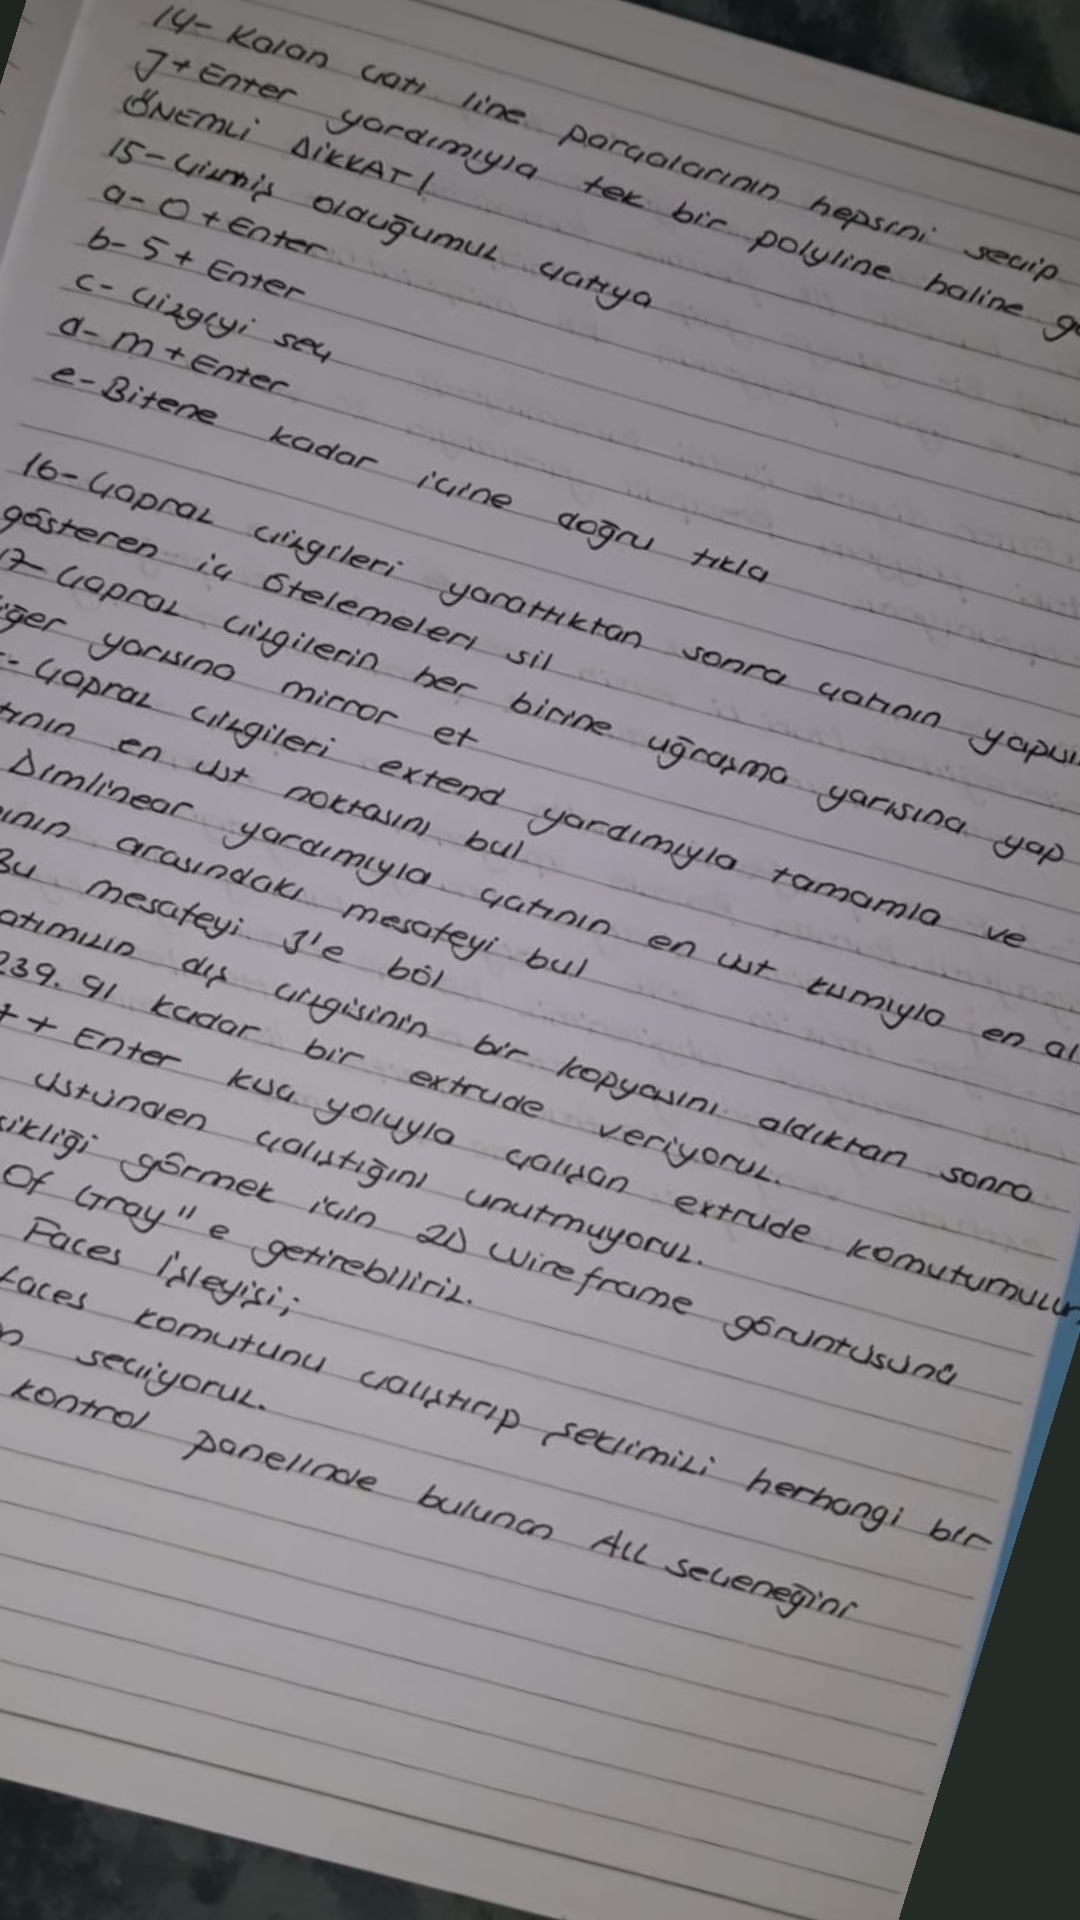 14- Kalan çatı line parçalarının hepsini seçip
J+Enter yardımıyla tek bir polyline haline
ÖNEMLİ DİKKAT!
15- Çizmiş olduğumuz çatıya
a- O + Enter
b- 5 + Enter
c- Çizgiyi seç
d- m + Enter
e- Bitene kadar içine doğru tıkla
16- Çapraz çizgileri yarattıktan sonra çatının
gösteren iç ötelemeleri sil
17- Çapraz çizgilerin her birine uğraşma yarısına yap
yarısına mirror et
Çapraz çizgileri extend yardımıyla tamamla ve
en üst noktasını bul
Dimlinear yardımıyla çatının en üst kısmıyla en
arasındaki mesafeyi bul
Bu mesafeyi 3'e böl
dış çizgisinin bir kopyasını aldıktan sonra
239.91 kadar bir extrude veriyoruz.
+ Enter kısa yoluyla çalışan extrude komutumuzun
üstünden çalıştığını unutmuyoruz.
görmek için 2D Wireframe görüntüsünü
Of Gray" e getirebiliriz.
Faces İşleyişi;
faces komutunu çalıştırıp şeklimizi herhangi bir
seçiyoruz.
kontrol panelinde bulunan All seçeneğini